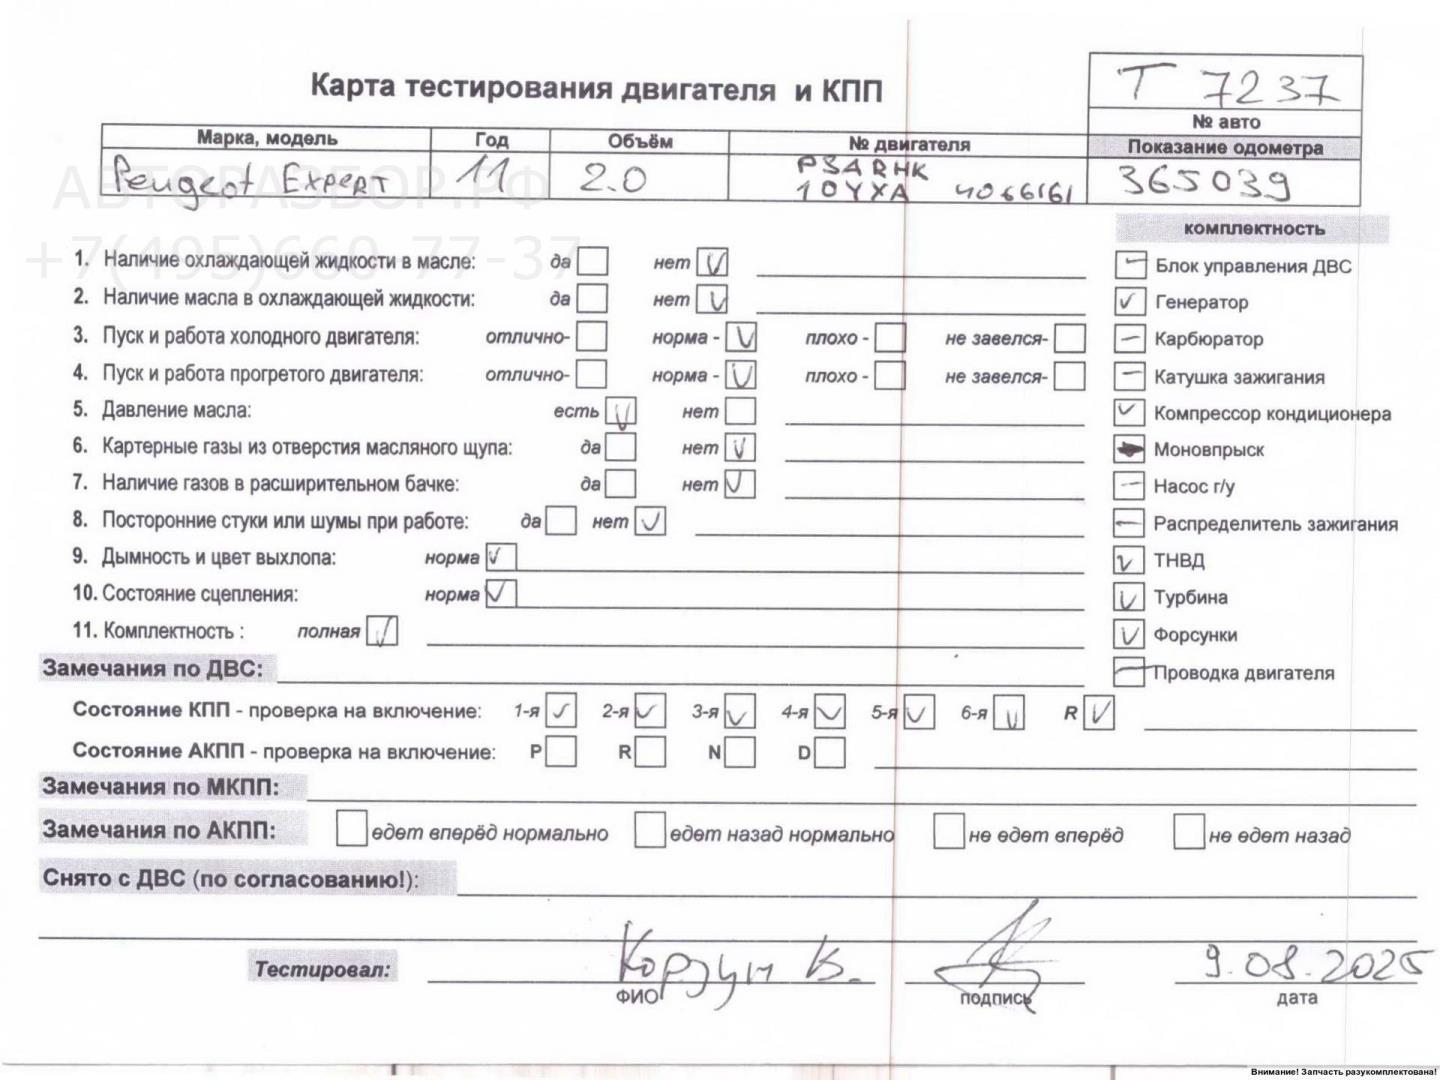 Карта тестирования двигателя и КПП
Т 7237
№ авто
Марка, модель Год Объём № двигателя Показание одометра
Peugeot Expert 11 2.0 PSARHK 10YXA 4066161 365039
АВТОРАЗБОР.РФ
+7(495)660-77-37
комплектность
1. Наличие охлаждающей жидкости в масле: да нет ✓
Блок управления ДВС
2. Наличие масла в охлаждающей жидкости: да нет ✓
✓ Генератор
3. Пуск и работа холодного двигателя: отлично- норма - ✓ плохо - не завелся-
Карбюратор
4. Пуск и работа прогретого двигателя: отлично- норма - ✓ плохо - не завелся-
Катушка зажигания
5. Давление масла: есть ✓ нет
✓ Компрессор кондиционера
6. Картерные газы из отверстия масляного щупа: да нет ✓
Моновпрыск
7. Наличие газов в расширительном бачке: да нет ✓
Насос г/у
8. Посторонние стуки или шумы при работе: да нет ✓
Распределитель зажигания
9. Дымность и цвет выхлопа: норма ✓
✓ ТНВД
10. Состояние сцепления: норма ✓
✓ Турбина
11. Комплектность : полная ✓
✓ Форсунки
Замечания по ДВС:
Проводка двигателя
Состояние КПП - проверка на включение: 1-я ✓ 2-я ✓ 3-я ✓ 4-я ✓ 5-я ✓ 6-я ✓ R ✓
Состояние АКПП - проверка на включение: P R N D
Замечания по МКПП:
Замечания по АКПП: едет вперёд нормально едет назад нормально не едет вперёд не едет назад
Снято с ДВС (по согласованию!):
Тестировал: Корзун В. 9.08.2025
ФИО подпись дата
Внимание! Запчасть разукомплектована!